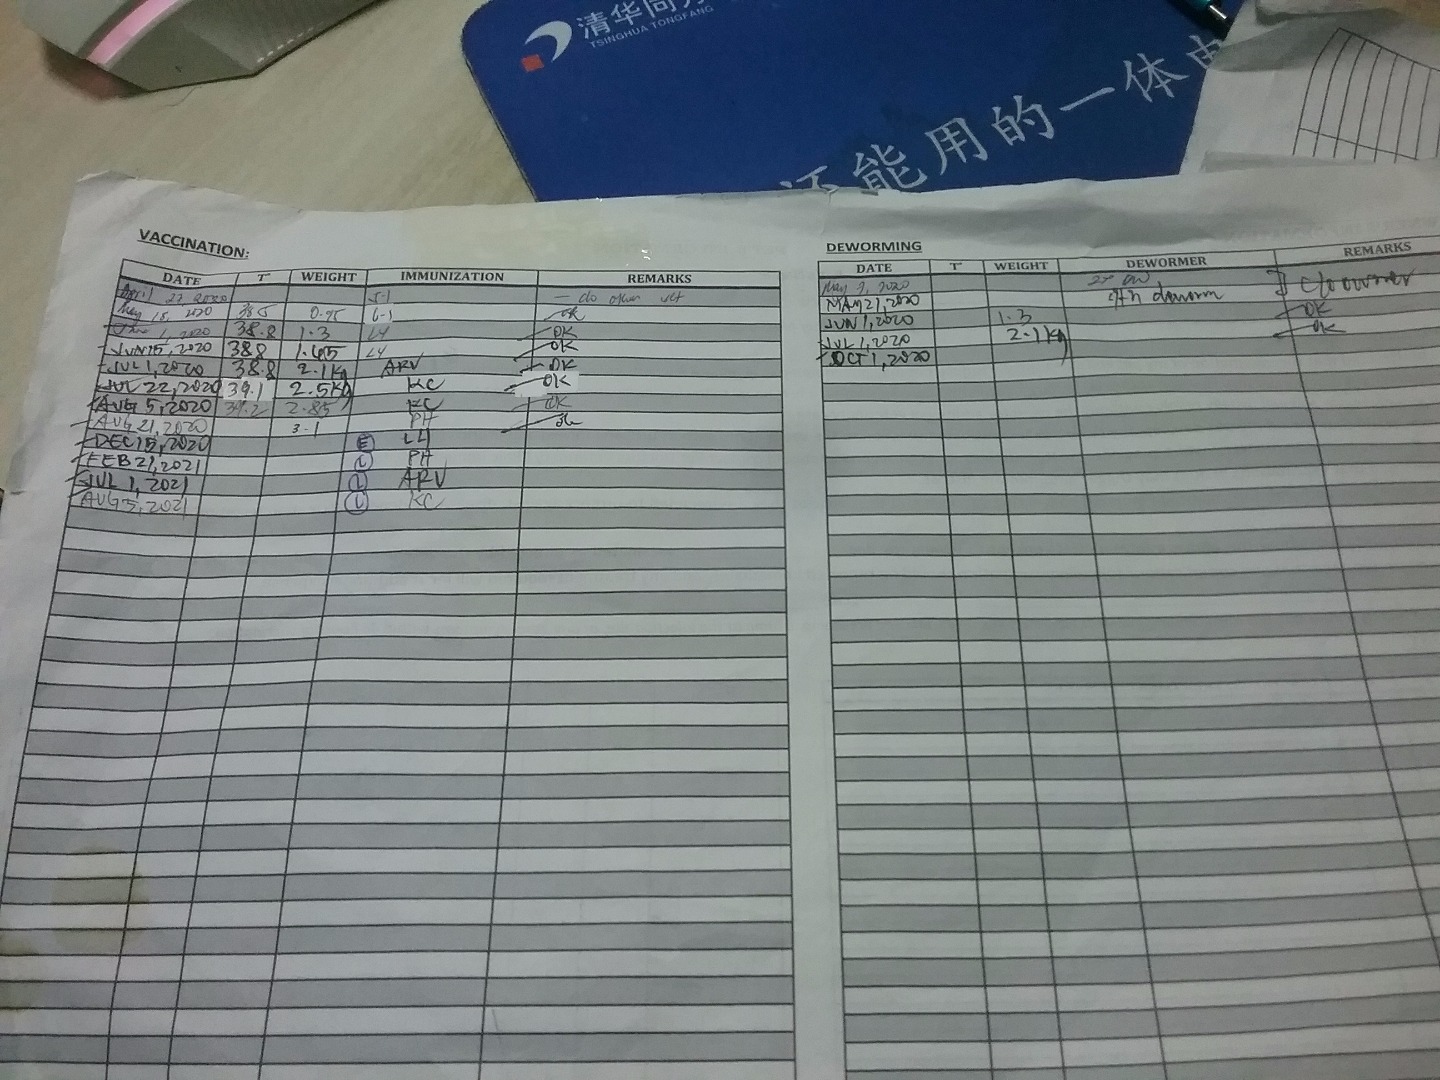 清华同方
TSINGHUA TONGFANG
还能用的一体电
VACCINATION:
DATE T WEIGHT IMMUNIZATION REMARKS
April 27, 2020 5-1 - c/o other vet
May 15, 2020 38.5 0.95 6-1 ok
June 1, 2020 38.8 1.3 L4 OK
JUN 15, 2020 388 1.45 L4 OK
JUL 1, 2020 38.8 2.1Kg ARV OK
JUL 22, 2020 39.1 2.5Kg KC OK
AUG 5, 2020 39.2 2.85 KC OK
AUG 21, 2020 3.1 PH ok
DEC 15, 2020 E L4
FEB 21, 2021 L PH
JUL 1, 2021 L ARV
AUG 5, 2021 L KC
DEWORMING
DATE T WEIGHT DEWORMER REMARKS
May 7, 2020 c/o owner
MAY 21, 2020 4th deworm
JUN 1, 2020 1.3 OK
JUL 1, 2020 2.1Kg OK
OCT 1, 2020